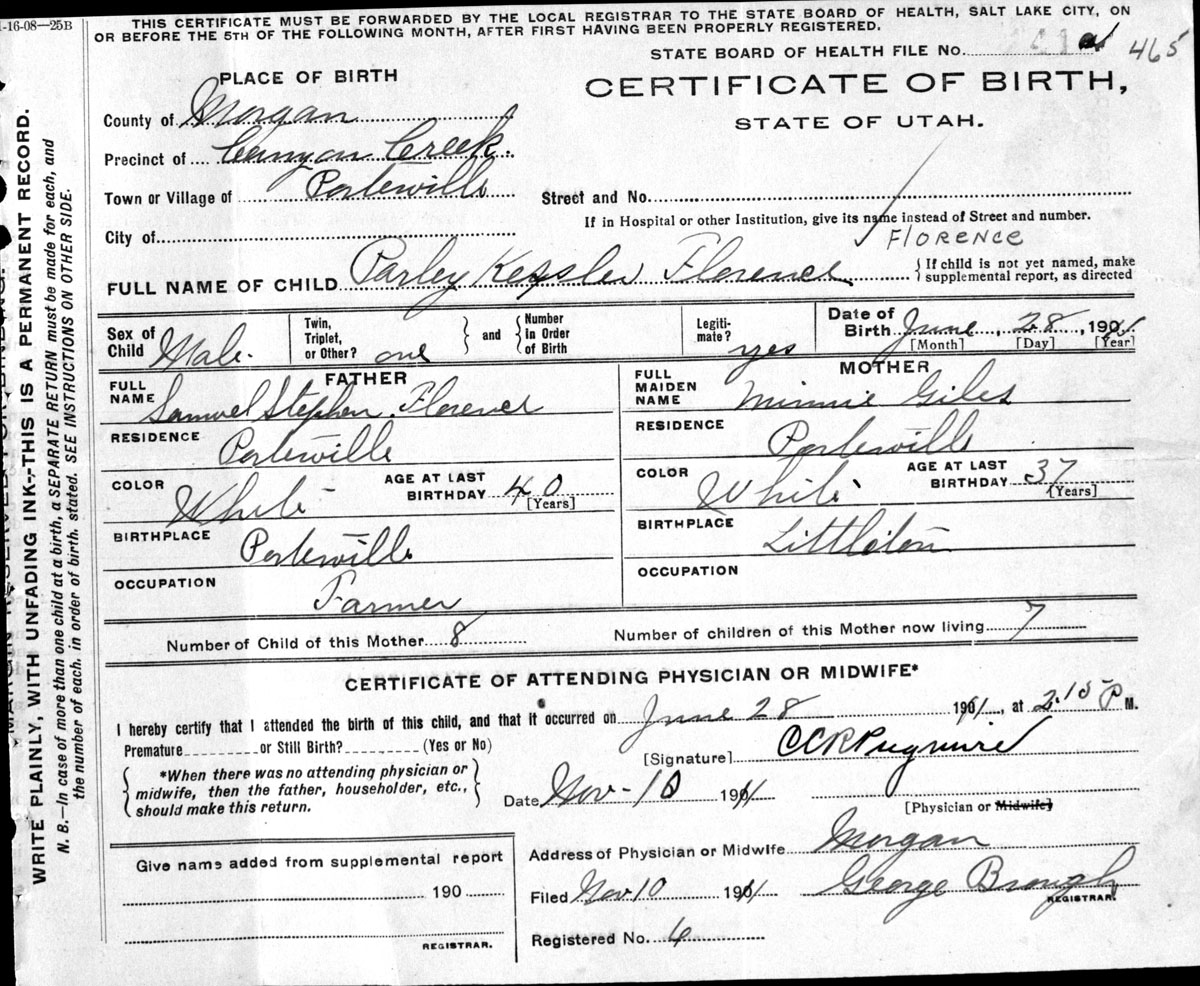 1-16-08—25B
THIS CERTIFICATE MUST BE FORWARDED BY THE LOCAL REGISTRAR TO THE STATE BOARD OF HEALTH, SALT LAKE CITY, ON
OR BEFORE THE 5TH OF THE FOLLOWING MONTH, AFTER FIRST HAVING BEEN PROPERLY REGISTERED.
STATE BOARD OF HEALTH FILE No. 465
PLACE OF BIRTH
CERTIFICATE OF BIRTH,
STATE OF UTAH.
County of Morgan
Precinct of Canyon Creek
Town or Village of Porterville
Street and No.
If in Hospital or other Institution, give its name instead of Street and number.
City of
FLORENCE
FULL NAME OF CHILD Parley Kessler Florence
{If child is not yet named, make
supplemental report, as directed
Sex of Child Male.
Twin, Triplet, or Other? one
and
Number in Order of Birth
Legiti-mate? yes
Date of Birth June, 28, 1911
[Month] [Day] [Year]
FATHER
FULL NAME Samuel Stephen Florence
RESIDENCE Porterville
COLOR White
AGE AT LAST BIRTHDAY 40
[Years]
BIRTHPLACE Porterville
OCCUPATION Farmer
MOTHER
FULL MAIDEN NAME Minnie Giles
RESIDENCE Porterville
COLOR White
AGE AT LAST BIRTHDAY 37
[Years]
BIRTHPLACE Littleton
OCCUPATION
Number of Child of this Mother 8
Number of children of this Mother now living 7
CERTIFICATE OF ATTENDING PHYSICIAN OR MIDWIFE*
I hereby certify that I attended the birth of this child, and that it occurred on June 28 1911, at 2.15 P M.
Premature or Still Birth? (Yes or No)
[Signature] CCR Pugmire
{*When there was no attending physician or
midwife, then the father, householder, etc.,
should make this return.}
Date Nov-10 1911
[Physician or Midwife]
Address of Physician or Midwife Morgan
Filed Nov 10 1911 George Brough
REGISTRAR.
Registered No. 4
Give name added from supplemental report
190
REGISTRAR.
WRITE PLAINLY, WITH UNFADING INK--THIS IS A PERMANENT RECORD.
N. B.—In case of more than one child at a birth, a SEPARATE RETURN must be made for each, and
the number of each, in order of birth, stated. SEE INSTRUCTIONS ON OTHER SIDE.